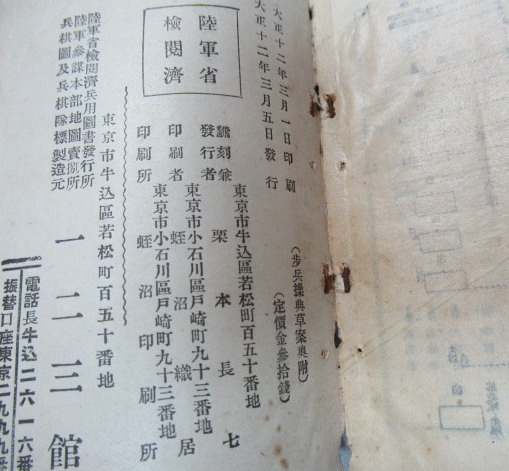 大正十二年三月一日印刷
大正十二年三月五日發行
(步兵操典草案奥附)
(定價金參拾錢)
陸軍省
檢閲濟
東京市牛込區若松町百五十番地
飜刻兼
發行者 栗本長七
東京市小石川區戸崎町九十三番地
印刷者 蛭沼織居
東京市小石川區戸崎町九十三番地
印刷所 蛭沼印刷所
東京市牛込區若松町百五十番地
陸軍省檢閲濟兵用圖書發行所
陸軍參謀本部地圖賣捌所
兵棋圖及兵棋隊標製造元
一二三館
電話長牛込二六一六番
振替口座東京二九九九番